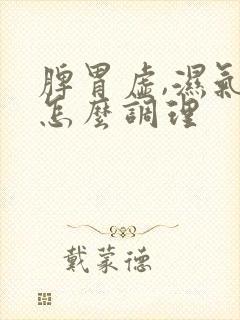 脾胃虛,濕氣
怎麼調理
戴蒙德